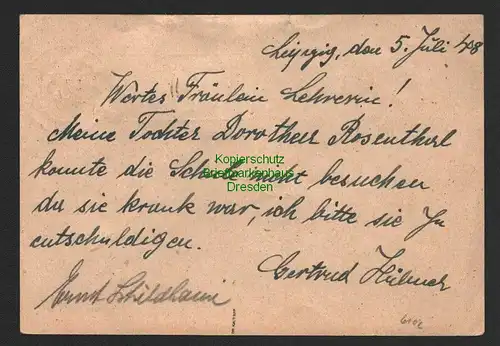 Leipzig, den 5. Juli 48
Wertes Fräulein Lehrerin!
Meine Tochter Dorothea Rosenthal
konnte die Schule nicht besuchen
da sie krank war, ich bitte sie zu
entschuldigen.
Gertrud Hübner
Ernst Schildhauer
Kopierschutz
Briefmarkenhaus
Dresden